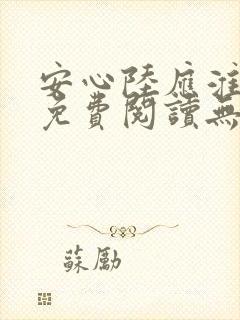 安心陸應淮
免費閱讀無
蘇勵